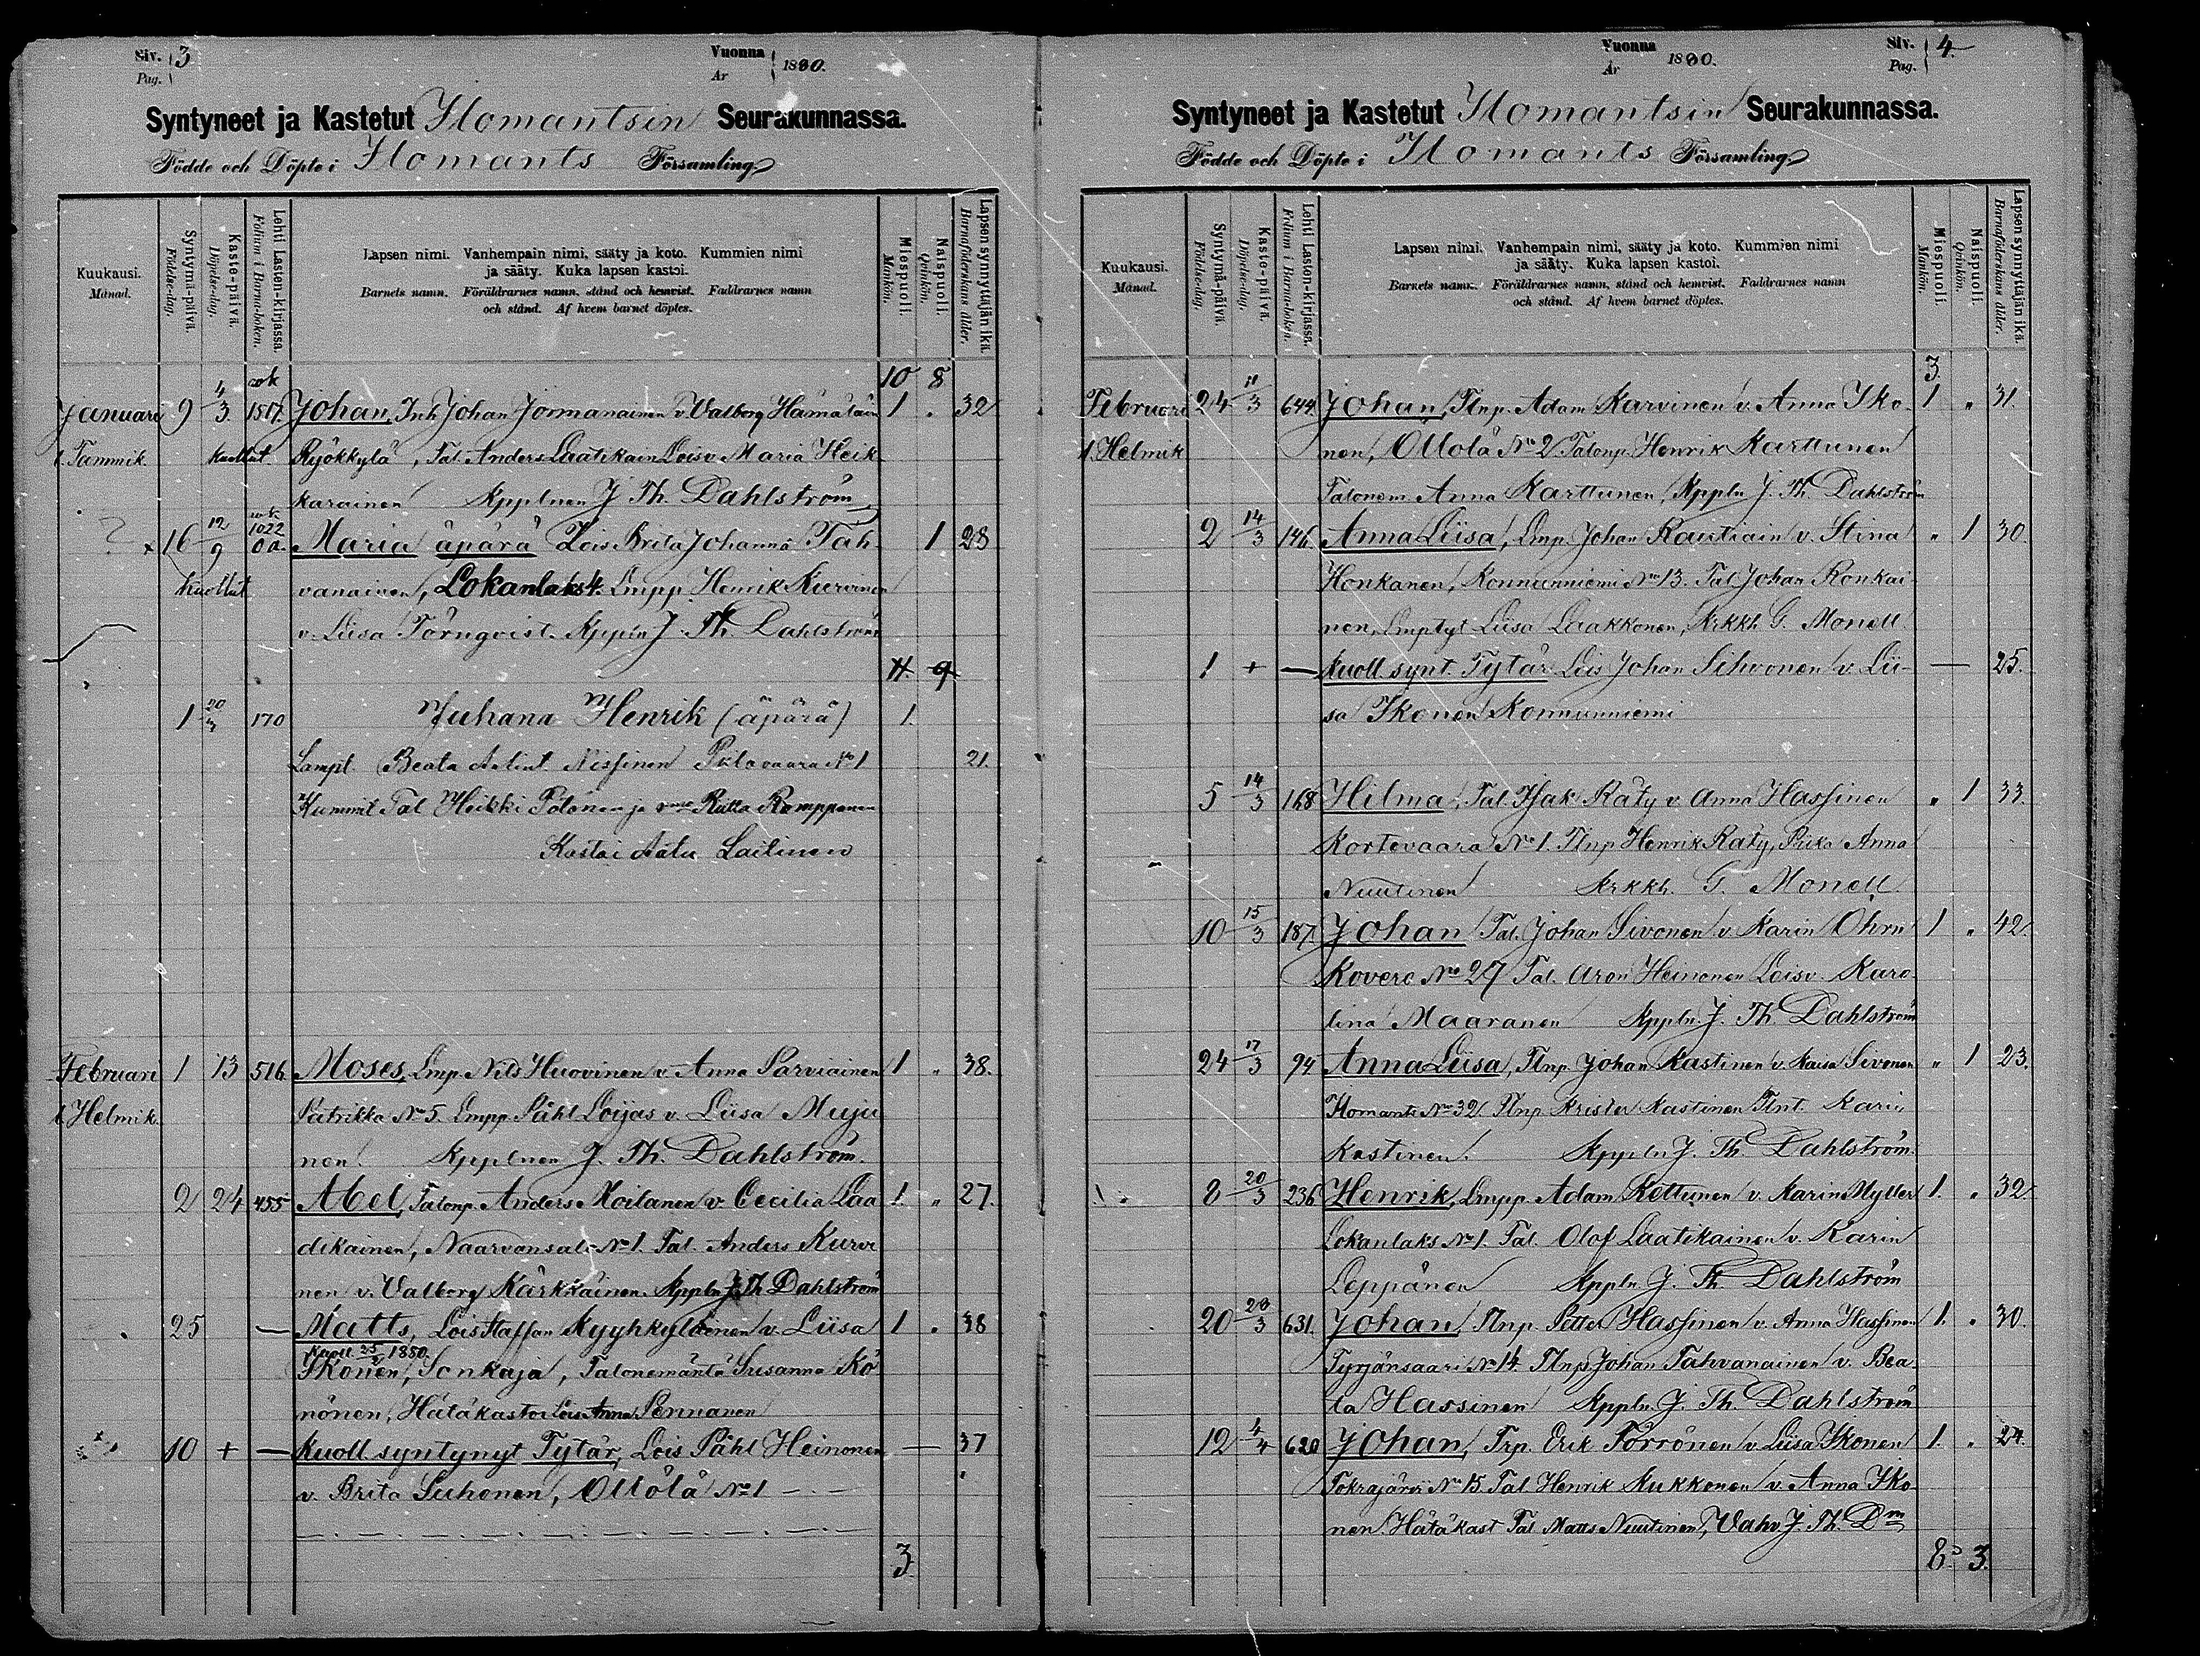 Siv. 3
Pag.
Vuonna 1880.
År
Syntyneet ja Kastetut Ilomantsin Seurakunnassa.
Födde och Döpte i Ilomants Församling
Kuukausi. Månad.
Syntymä-päivä. Födelse-dag.
Kaste-päivä. Döpelse-dag.
Lehti Lasten-kirjassa. Folium i Barna-boken.
Lapsen nimi. Vanhempain nimi, sääty ja koto. Kummien nimi
ja sääty. Kuka lapsen kastoi.
Barnets namn. Föräldrarnes namn, stånd och hemvist. Faddrarnes namn
och stånd. Af hvem barnet döptes.
Miespuoli. Mankön.
Naispuoli. Qvinkön.
Lapsen synnyttäjän ikä. Barnaföderskans ålder.
10 8
Januari 9 4/3 1517. Johan, Inh. Johan Jormanainen v. Valborg Hämäläin 1 . 32
l. Tammik. kuollut Ryökkylä, Tal. Anders Laatikain Loisv. Maria Heik
karainen Kpplnen J. Th. Dahlström
? 16 12/9 1022 Maria äpärä Lois Brita Johanna Tah 1 28
kuollut vanainen, Lokanlaks 4. Lmpp. Henrik Kurvinen
v. Liisa Törnqvist. Kppln J. Th. Dahlström
11. 9
1 20 170 Juhana Henrik (äpärä) 1.
Lampt. Beata Nissinen Piilovaara No 1 21.
Kummit Tal Heikki Pölönen ja vmo Riitta Romppanen
Kastoi Aatu Laitinen
Februari 1 13 516 Moses, Lmp. Nils Huovinen v. Anna Parviainen 1 " 38.
l. Helmik. Patrikka No 5. Lmpp Påhl Loijas v. Liisa Muju
nen. Kpplnen J. Th. Dahlström.
2 24 455 Abel, Talonp. Anders Moilanen v. Cecilia Laa 1. " 27.
dikainen, Naarvansalo No 1. Tal. Anders Kurvi
nen v. Valborg Kärkkäinen. Kppln J. Th Dahlström
25 — Matts, Lois Staffan Kyyhkyläinen v. Liisa 1 . 38
kuoll. 25/2 1880.
Ikonen, Sonkaja, Talonemäntä Susanna Ko
nönen, Hätäkastoi Lois Anna Pennanen
10 + — kuoll. syntynyt Tytär, Lois Påhl Heinonen — 37
v. Brita Suhonen, Ollola No 1 — . —
3.
Vuonna 1880.
År
Siv. 4.
Pag.
Syntyneet ja Kastetut Ilomantsin Seurakunnassa.
Födde och Döpte i Ilomants Församling.
Kuukausi. Månad.
Syntymä-päivä. Födelse-dag.
Kaste-päivä. Döpelse-dag.
Lehti Lasten-kirjassa. Folium i Barna-boken.
Lapsen nimi. Vanhempain nimi, sääty ja koto. Kummien nimi
ja sääty. Kuka lapsen kastoi.
Barnets namn. Föräldrarnes namn, stånd och hemvist. Faddrarnes namn
och stånd. Af hvem barnet döptes.
Miespuoli. Mankön.
Naispuoli. Qvinkön.
Lapsen synnyttäjän ikä. Barnaföderskans ålder.
3.
Februari 24 11/3 644 Johan, Tlnp. Adam Karvinen v. Anna Iko- 1 " 31.
l. Helmik nen, Ollola No 2. Talonp. Henrik Karttunen
Talonem Anna Karttunen, Kppln J. Th. Dahlström
2 14/3 146. Anna Liisa, Lmp. Johan Rautiain v. Stina " 1 30.
Honkanen, Konnunniemi No 13. Tal Johan Ronkai
nen, Lmptyt Liisa Laakkonen, Krkkh G. Monell
1 + — kuoll. synt. Tytär Lois Johan Sihvonen v. Lii- — 25.
sa Ikonen Konnunniemi
5 14/3 168 Hilma, Tal. Isak Räty v. Anna Hassinen " 1 33.
Kortevaara No 1. Tlnp Henrik Räty, Piika Anna
Nuutinen Krkkh. G. Monell
10 15/3 187. Johan Tal. Johan Sivonen v. Karin Öhrn 1 " 42.
Kovero No 27 Tal. Aron Heinonen Loisv. Karo
lina Maaranen Kppln. J. Th. Dahlström
24 17/3 94 Anna Liisa, Tlnp. Johan Kastinen v. Kaisa Sivonen " 1 23.
Ilomants No 32. Tlnp Krister Kastinen Tlnt. Karin
Kastinen. Kppln J. Th Dahlström.
8 20/3 236 Henrik, Lmpp. Adam Kettunen v. Karin Myller 1. " 32.
Lokanlaks No 1. Tal. Olof Laatikainen v. Karin
Leppänen Kppln. J. Th Dahlström
20 28/3 631. Johan, Tlnp. Petter Hassinen v. Anna Hassinen 1. " 30.
Tyrjänsaari No 14. Tlnp. Johan Tahvanainen v. Bea
ta Hassinen Kppln. J. Th Dahlström
12 4/4 620 Johan, Trp. Erik Törrönen v. Liisa Ikonen 1. " 24.
Tokrajärvi No 15. Tal Henrik Kukkonen v. Anna Iko
nen. Hätäkast Tal Matts Nuutinen, Vahv. J. Th. Dm
8. 3.